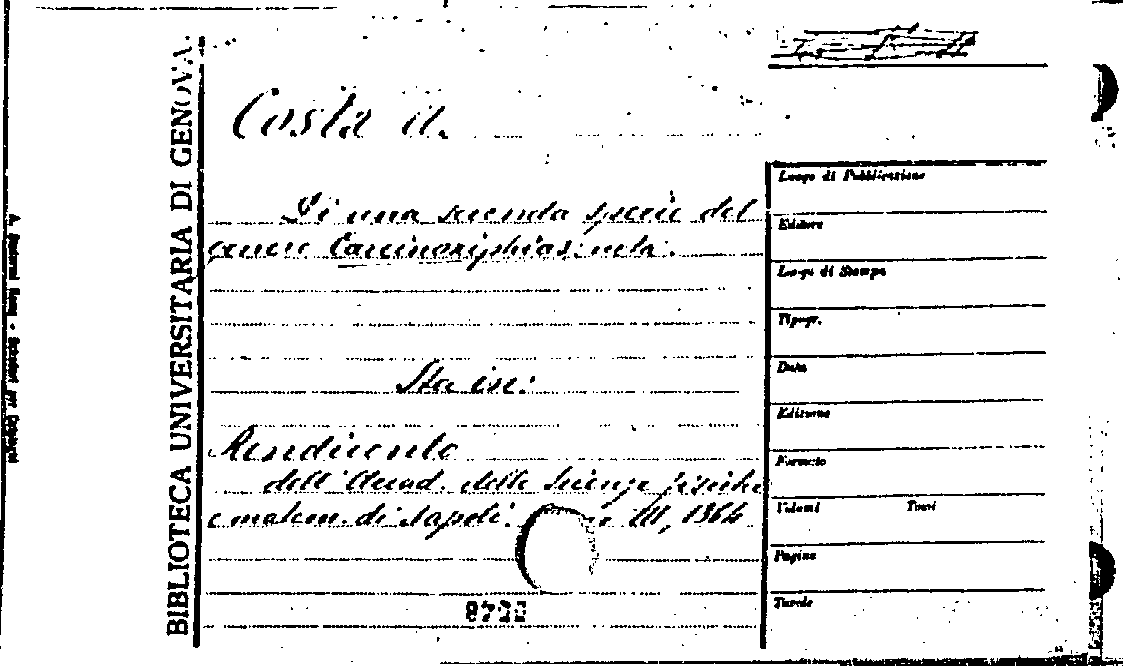 BIBLIOTECA UNIVERSITARIA DI GENOVA.
Costa A.
Di una seconda specie del
genere Carcinoxiphias: nota.
Sta in:
Rendiconto
dell'Accad. delle Scienze fisiche
e matem. di Napoli. III, 1864
Luogo di Pubblicazione
Editore
Luogo di Stampa
Tipogr.
Data
Edizione
Formato
Volumi Tomi
Pagine
Tavole